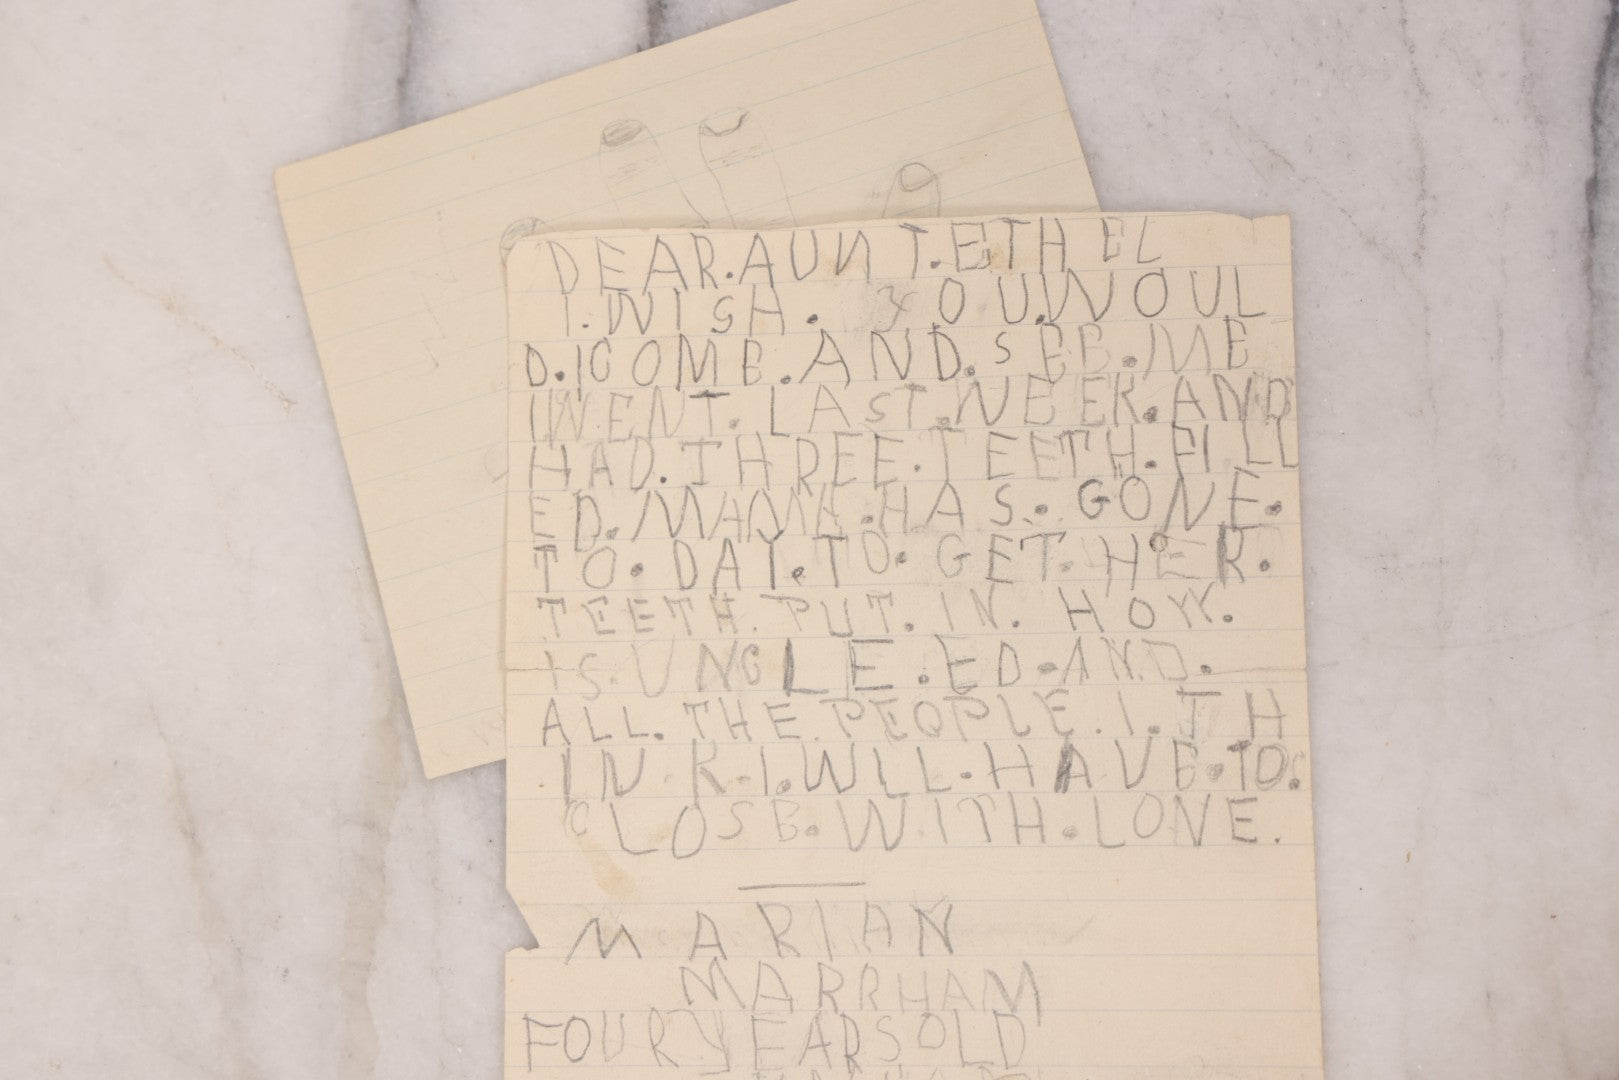 DEAR.AUNT.ETHEL
I.WISH. YOU.WOUL
D.ICOME.AND.SEE.ME
IWENT.LAST.WEEK.AND
HAD.THREE.TEETH.FILL
ED.MAMA.HAS.GONE.
TO.DAY.TO.GET.HER.
TEETH.PUT.IN.HOW.
IS.UNCLE.ED.AND.
ALL.THE.PEOPLE.I.TH
INK.I.WLL.HAVE.TO.
CLOSE.WITH.LOVE.
MARIAN
MARRHAM
FOURYEARSOLD